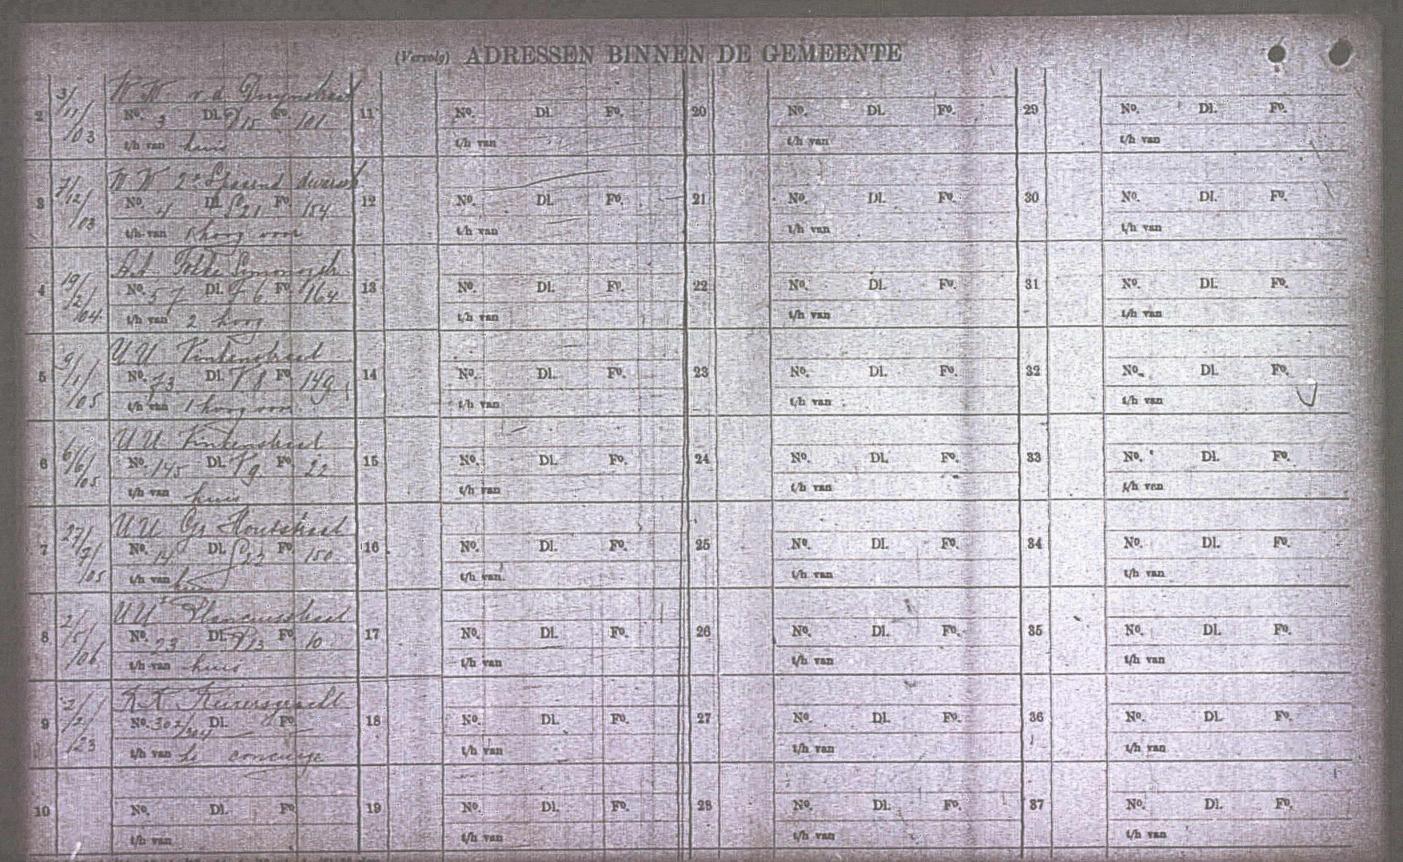 (Vervolg) ADRESSEN BINNEN DE GEMEENTE
2 3/11/03 W W v. d. Duynstraat
No. 3 Dl. 15 Fo. 101
t/h van huis
3 7/12/03 W W 2e dwarsst
No. 4 Dl. 21 Fo. 154
t/h van 1 hoog voor
4 19/2/04 Fokke Simonszstr
No. 57 Dl. 6 Fo. 164
t/h van 2 hoog
5 9/1/05 U U Vinkenstraat
No. 73 Dl. V 8 Fo. 149
t/h van 1 hoog voor
6 6/6/05 U U Vinkenstraat
No. 145 Dl. V 9 Fo. 22
t/h van huis
7 27/7/05 U U Gr Houtstraat
No. 14 Dl. 22 Fo. 150
t/h van huis
8 2/5/06 U U Planciusstraat
No. 23 Dl. 13 Fo. 10
t/h van huis
9 2/2/23 K K Keizersgracht
No. 302/304 Dl. Fo.
t/h van hs concierge
10
No. Dl. Fo.
t/h van
11
No. Dl. Fo.
t/h van
12
No. Dl. Fo.
t/h van
13
No. Dl. Fo.
t/h van
14
No. Dl. Fo.
t/h van
15
No. Dl. Fo.
t/h van
16
No. Dl. Fo.
t/h van
17
No. Dl. Fo.
t/h van
18
No. Dl. Fo.
t/h van
19
No. Dl. Fo.
t/h van
20
No. Dl. Fo.
t/h van
21
No. Dl. Fo.
t/h van
22
No. Dl. Fo.
t/h van
23
No. Dl. Fo.
t/h van
24
No. Dl. Fo.
t/h van
25
No. Dl. Fo.
t/h van
26
No. Dl. Fo.
t/h van
27
No. Dl. Fo.
t/h van
28
No. Dl. Fo.
t/h van
29
No. Dl. Fo.
t/h van
30
No. Dl. Fo.
t/h van
31
No. Dl. Fo.
t/h van
32
No. Dl. Fo.
t/h van
33
No. Dl. Fo.
t/h van
34
No. Dl. Fo.
t/h van
35
No. Dl. Fo.
t/h van
36
No. Dl. Fo.
t/h van
37
No. Dl. Fo.
t/h van